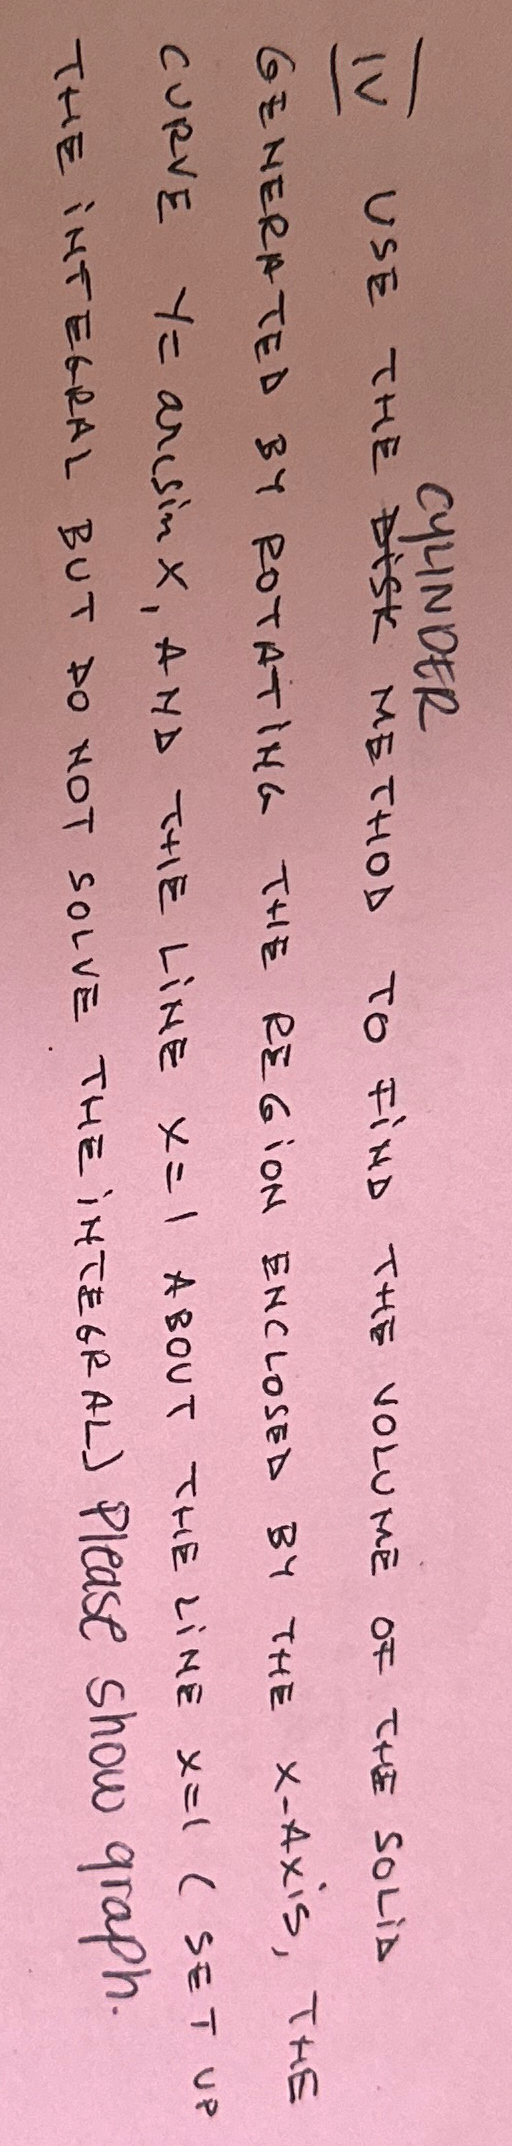 CYLINDER
IV USE THE DISK METHOD TO FIND THE VOLUME OF THE SOLID
GENERATED BY ROTATING THE REGION ENCLOSED BY THE X-AXIS, THE
CURVE Y= arcsin X, AND THE LINE X=1 ABOUT THE LINE X=1 ( SET UP
THE INTEGRAL BUT DO NOT SOLVE THE INTEGRAL) Please show graph.